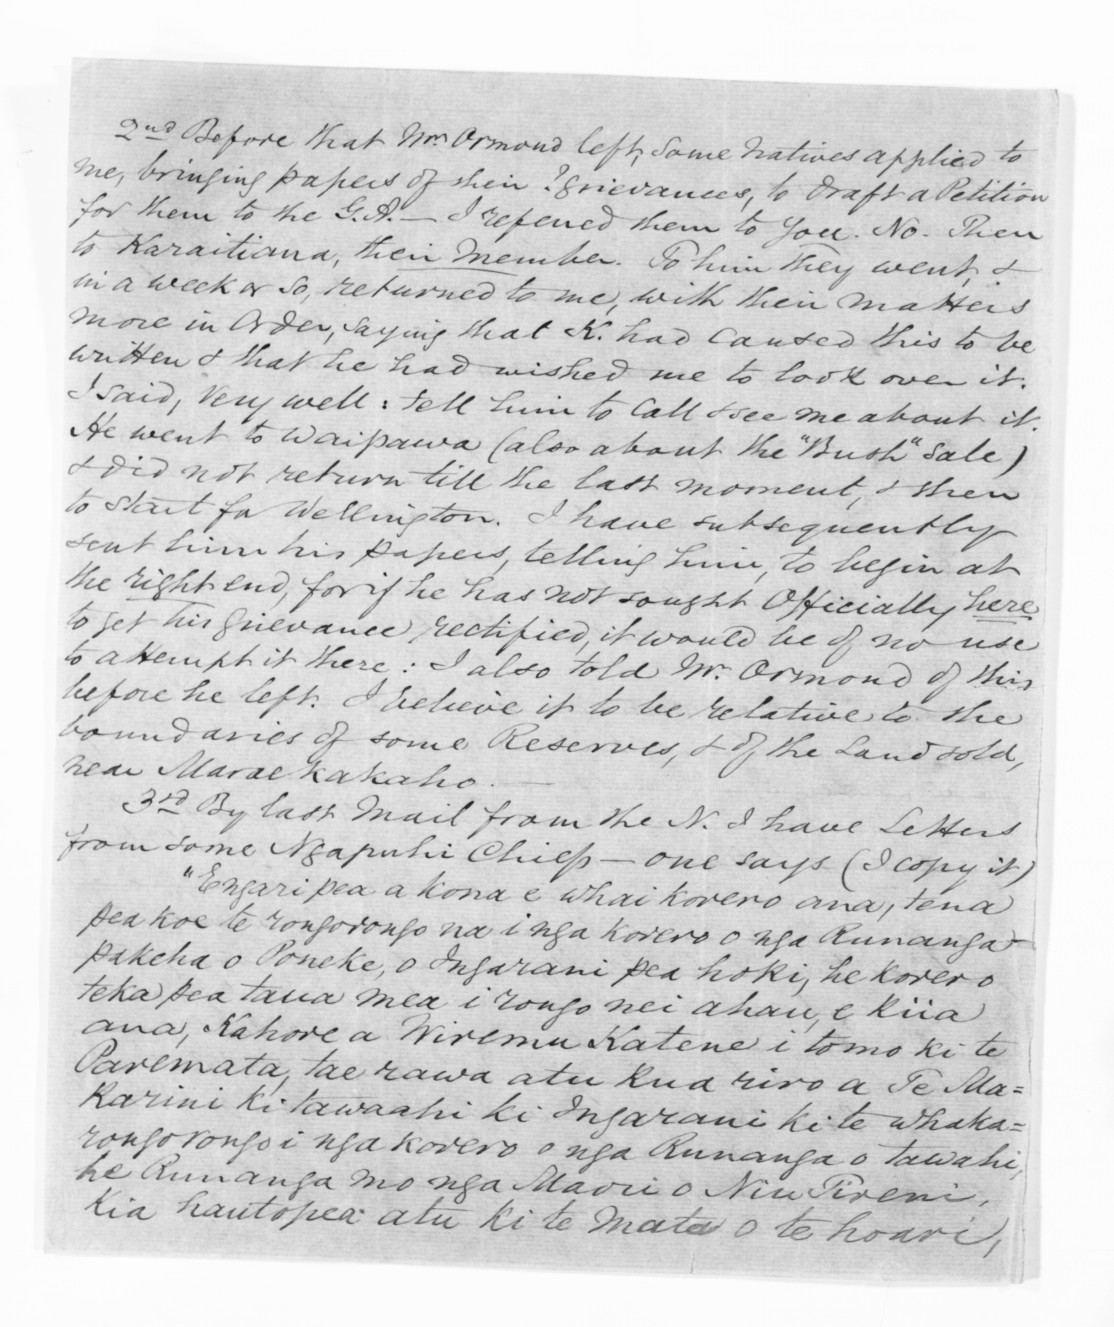 2nd Before that Mr. Ormond left, some Natives applied to
me, bringing papers of their ?grievances, to draft a Petition
for them to the G.A. — I referred them to you. No. Then
to Karaitiana, their Member. To him they went, &
in a week or so, returned to me, with their matters
more in order, saying that K. had caused this to be
written & that he had wished me to look over it.
I said, Very well: tell him to call & see me about it.
He went to Waipawa (also about the "Bush" sale)
& did not return till the last moment, & then
to start for Wellington. I have subsequently
sent him his papers, telling him, to begin at
the right end, for if he has not sought Officially here
to get his grievance rectified, it would be of no use
to attempt it there: I also told Mr. Ormond of this
before he left. I believe it to be relative to the
boundaries of some Reserves, & of the Land sold,
near Maraekakaho. —
3rd By last Mail from the N. I have Letters
from some Ngapuhi Chiefs — one says (I copy it)
"Engari pea a kona e whai korero ana, tena
pea koe te rongorongo na i nga korero o nga Runanga
pakeha o Poneke, o Ingarani pea hoki, he korero
teka pea taua mea i rongo nei ahau, e kiia
ana, Kahore a Wiremu Katene i tomo ki te
Paremata, tae rawa atu kua riro a Te Ma=
karini ki tawaahi ki Ingarani ki te whaka=
rongorongo i nga korero o nga Runanga o tawahi,
he Runanga mo nga Maori o Niu Tireni,
Kia hautopea atu ki te mata o te hoari,